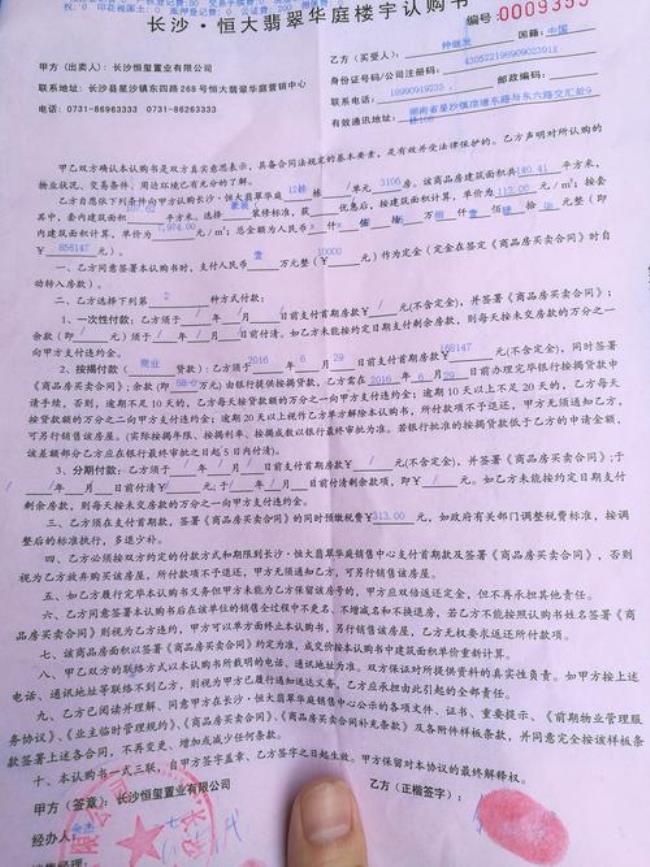 长沙·恒大翡翠华庭楼宇认购书
编号:0009355
甲方(出卖人):长沙恒玺置业有限公司
乙方(买受人): 国籍:中国
身份证号码/公司注册码:
联系地址:长沙县星沙镇东四路268号恒大翡翠华庭营销中心
联系电话: 邮政编码:
电话:0731-86963333 0731-86263333
有效通讯地址:
甲乙双方确认本认购书是双方真实意思表示,具备合同法规定的基本要素,是有效并受法律保护的。乙方声明对所认购的
物业状况、交易条件、周边环境已有充分的了解。
乙方自愿依下列条件向甲方认购长沙·恒大翡翠华庭12栋栋/单元3106房。该商品房建筑面积共140.41平方米,
其中,套内建筑面积107.62平方米。选择 装修标准,获 优惠后,按建筑面积计算,单价为 元/m²;按套
内建筑面积计算,单价为7,974.00元/m²;总金额为人民币 元整(即
¥858147元)。
一、乙方同意签署本认购书时,支付人民币壹万元整(¥10000元)作为定金(定金在签定《商品房买卖合同》时自
动转入房款)。
二、乙方选择下列第2种方式付款:
1、一次性付款:乙方须于/年/月/日前支付首期房款¥/元(不含定金),并签署《商品房买卖合同》;
余款(即/元)须于/年/月/日前付清。如乙方未能按约定日期支付剩余房款,则每天按未交房款的万分之一
向甲方支付违约金。
2、按揭付款(商业贷款):乙方须于2016年6月29日前支付首期房款¥168147元(不含定金),同时签署
《商品房买卖合同》;余款(即68.0万元)由银行提供按揭贷款,乙方需在2016年6月29日前办理完毕银行按揭贷款申
请手续,否则,逾期不足10天的,乙方每天按贷款额的万分之一向甲方支付违约金;逾期10天以上不足20天的,乙方每天
按贷款额的万分之二向甲方支付违约金;逾期20天以上视作乙方单方解除本认购书,所付款项不予退还,甲方无须通知乙方,
可另行销售该房屋。(实际按揭年限、按揭利率、按揭成数以银行最终审批为准。若银行批准的按揭贷款低于乙方的申请金额,
该差额部分乙方应在银行最终审批之日起5日内付清)。
3、分期付款:乙方须于/年/月/日前支付首期房款¥/元(不含定金),并签署《商品房买卖合同》;于
/年/月/日前付清¥/元;于/年/月/日前付清剩余款项,即¥/元。如乙方未能按约定日期支付
剩余房款,则每天按未交房款的万分之一向甲方支付违约金。
三、乙方须在支付首期款,签署《商品房买卖合同》的同时预缴税费¥313.00元,如政府有关部门调整税费标准,按调
整后的标准执行,多退少补。
四、乙方必须按双方约定的付款方式和期限到长沙·恒大翡翠华庭销售中心支付首期款及签署《商品房买卖合同》,否则
视为乙方放弃购买该房屋,所付款项不予退还,甲方无须通知乙方,可另行销售该房屋。
五、如乙方履行完毕本认购书义务但甲方未能为乙方保留该房号的,甲方应双倍返还定金,但不再承担其他责任。
六、乙方同意签署本认购书后在该单位的销售全过程中不更名、不增减名和不换退房,若乙方不能按照认购书姓名签署《商
品房买卖合同》则视为乙方违约,甲方可以单方面终止本认购书,另行销售该房屋,乙方无权要求返还所付款项。
七、该商品房面积以签署《商品房买卖合同》约定为准,成交价按本认购书中建筑面积单价重新计算。
八、甲乙双方的联络方式以本认购书所载明的电话、通讯地址为准。双方保证对所提供资料的真实性负责。如甲方按上述
电话、通讯地址等联络不到乙方,则视为甲方已履行通知送达义务,乙方应承担由此引起的全部责任。
九、乙方已阅读并理解、同意甲方在长沙·恒大翡翠华庭销售中心公示的各项文件、证书、重要提示、《前期物业管理服
务协议》、《业主临时管理规约》、《商品房买卖合同》、《商品房买卖合同补充条款》及各附件样板条款,并同意完全按该样板条
款签署上述各合同,不再变更、增加或减少任何条款。
十、本认购书一式三联,自甲方签字盖章、乙方签字之日起生效。甲方保留对本协议的最终解释权。
甲方(签章):长沙恒玺置业有限公司
乙方(正楷签字):
经办人: